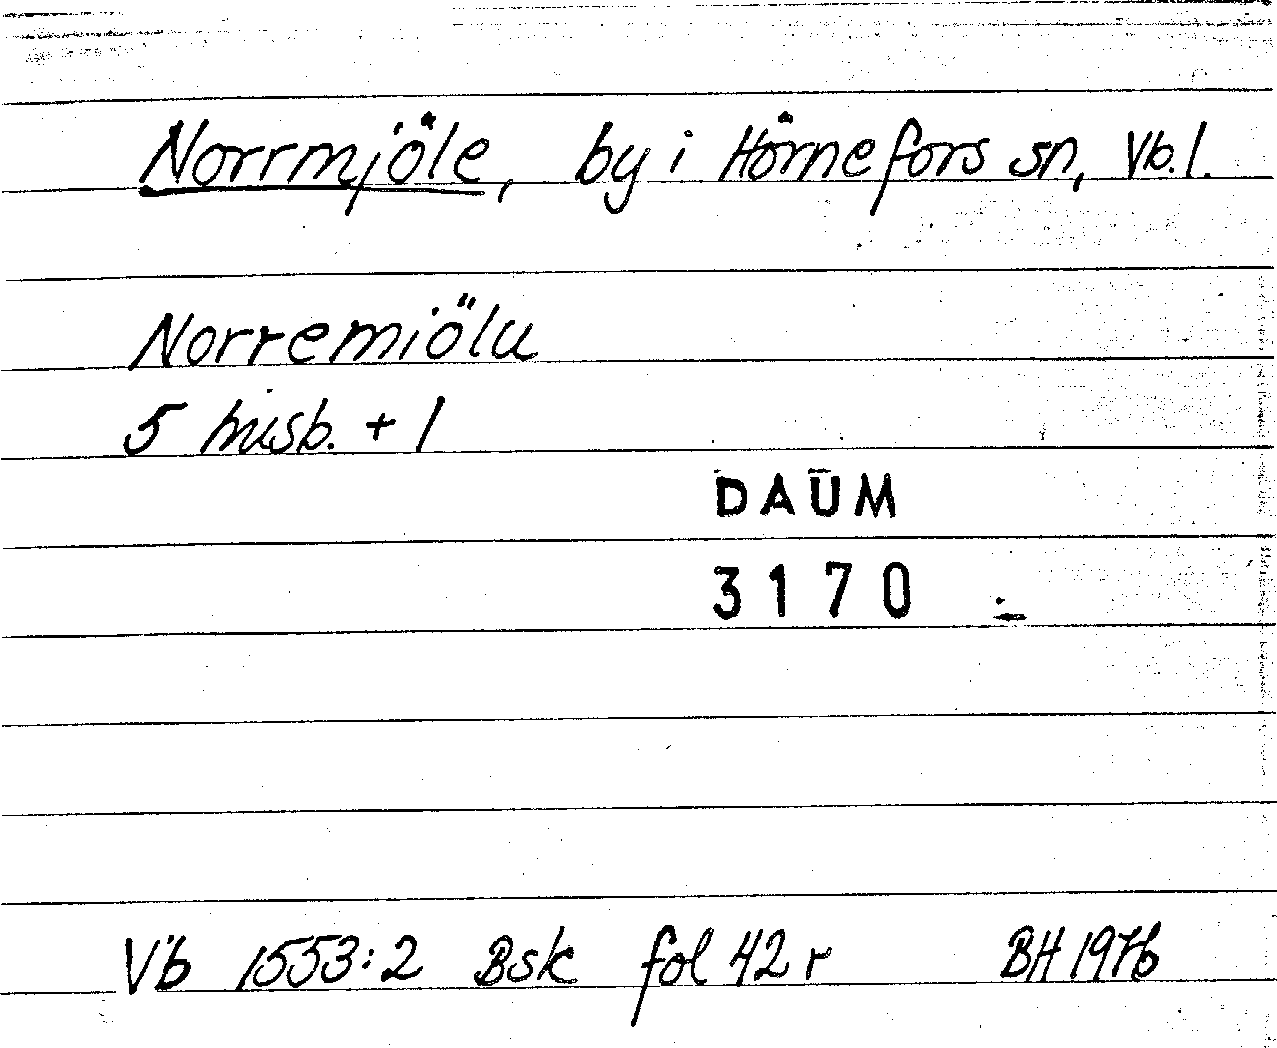 Norrmjöle, by i Hörnefors sn, Vb. l.
Norremiölu
5 husb. + 1
DAUM
3170
Vb 1553:2 Bsk fol 42 r BH 1976